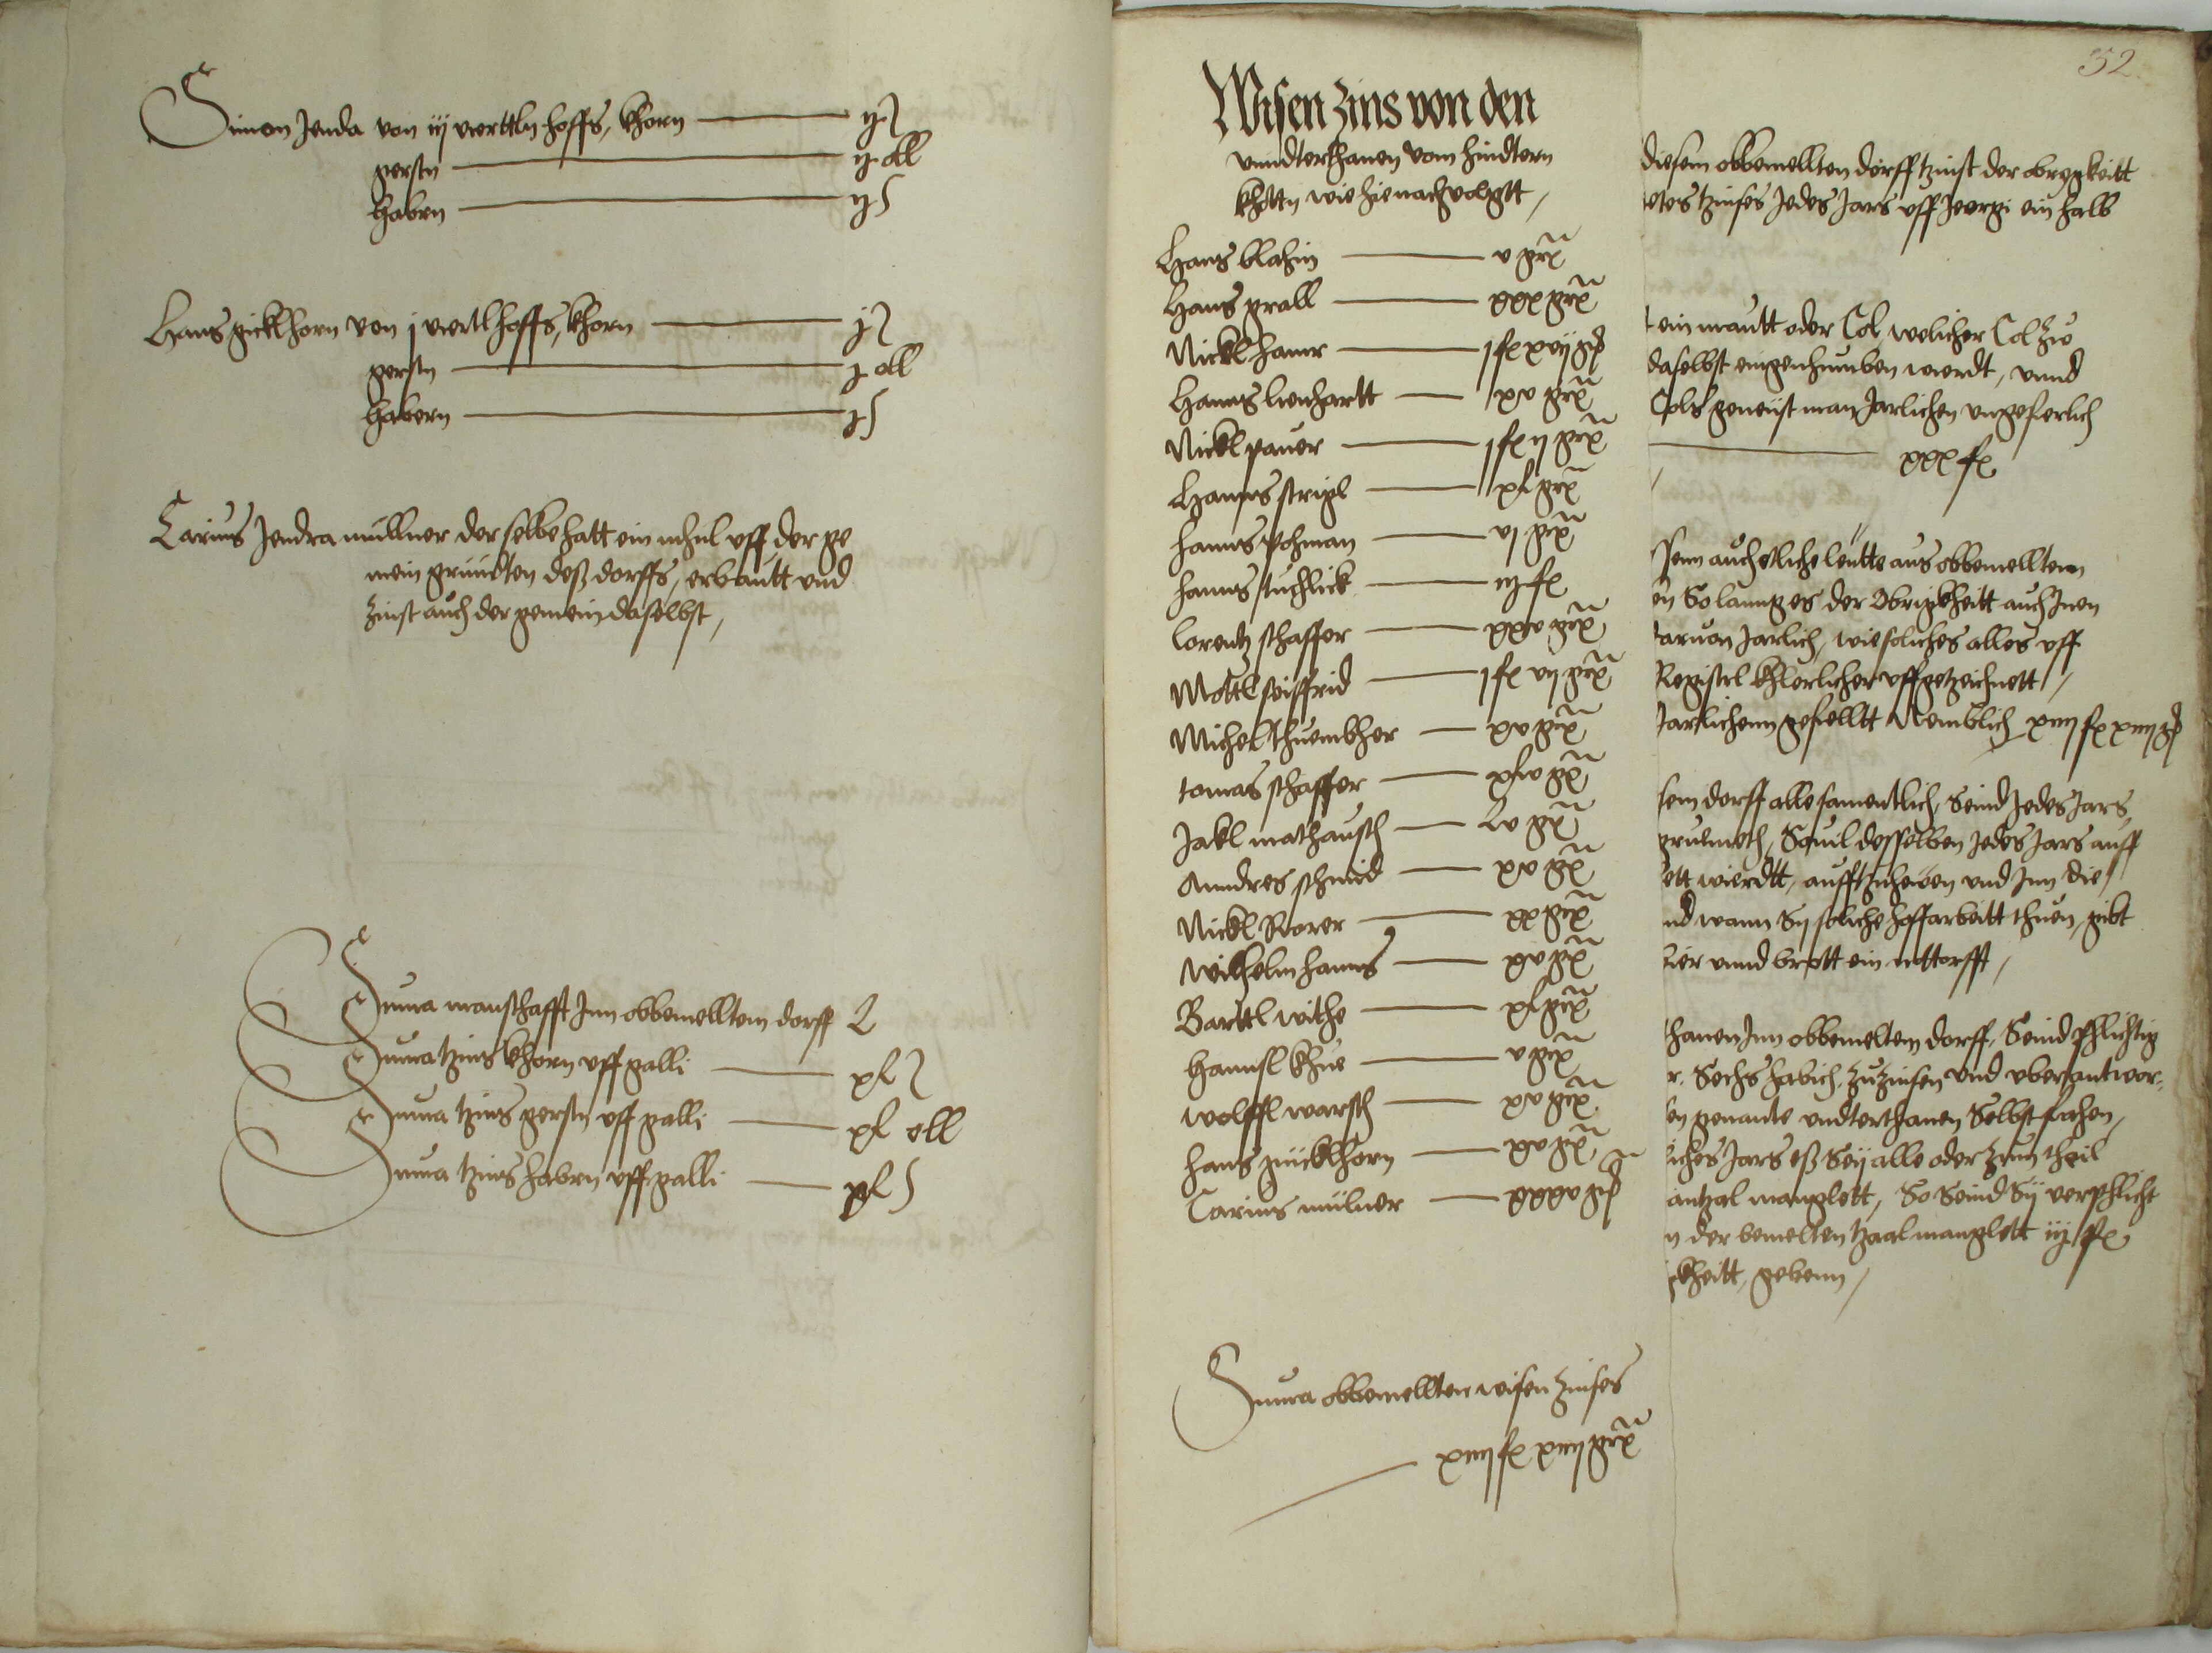 Simon Jenda von iij viertln hoffs, khorn — ij
gerstn — ij oll
habrn — ij
Hans gicklhorn von j viertl hoffs, khorn — j
gerstn — j oll
habern — j
Larius Jendra müllner der selbe hatt ein mhul uff der ge
mein gründten deß dorffs, erbautt und
zinst auch der gemein daselbst,
Suma manschafft Inn obbemelltem dorff
Suma tzins khorn uff galli — xl
Suma tzins gerstn uff galli — xl oll
Suma tzins habrn uff galli — xl
Wisen zins von den
unndterthanen vom hindtern
khottn wie hienach volgtt,
Hans blahin — v gr
Hans prall — xxx gr
Nickl hamr — j ß xvij gr
Hanns lienhartt — xv gr
Nickl paver — j ß ij gr
Hanns stripl — xl gr
hanns pohman — vj gr
hanns tuchlick — iij ß
lorentz schaffer — xxv gr
Mottl seiffrid — j ß vij gr
Michel thuembher — xv gr
tomas schaffer — xlv gr
Jakl mathausch — Lv gr
Anndres schmid — xv gr
Nickl Rorer — xx gr
wilhelm hanns — xv gr
Barttl withe — xl gr
hannsl khüe — v gr
wolffl warsch — xv gr
hans gücklhorn — xv gr
Larius mülner — xxxv gr
Suma obbemellten wisen zinses
xiiij ß xiiij gr
32
diesem obbemellten dorff tzinst der obrygkeitt
tzinses Jedes Jars uff Jeorgi ein halb
ein mautt oder Col, welicher Col zw
daselbst eingenhumben wierdt, unnd
Cols geneust man Jarlichen ungeferlich
xxx ß
auch etliche leutte aus obbemelltem
So lanng es der Obrigkheitt auch Inen
daruon Jarlich, wie soliches alles uff
Registrl khlerlicher uffgetzeichnett,
Jarlichenn gefelltt Nemblich xiiij ß xiiij gr
sem dorff alle samentlich, Seind Jedes Jars
Souil desselben Jedes Jars auff
ett wierdtt, aufftzuhewen und Inn die
nd wann Sy soliche hoffarbeitt thuen, gibt
bier unnd brott ein nottorfft,
thanen Inn obbemeltem dorff, Seind pflichtig
r. Sechs habich, zu zinsen und uberantwor-
en genante undterthanen Selbst fahen,
liches Jars eß Sey alle oder zum theil
antzal manglett, So Seind Sy verpflicht
n der bemelten tzaal manglett iij ß
kheitt, gebenn,